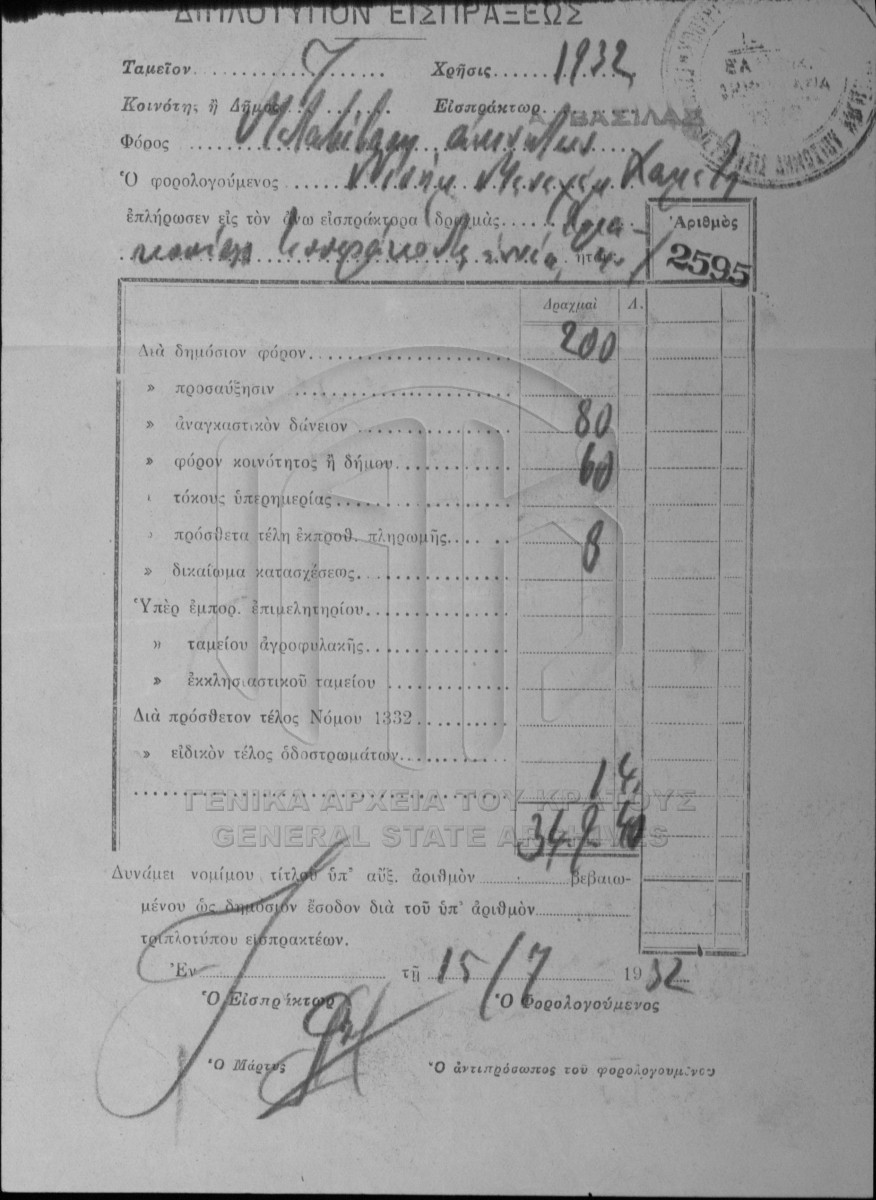 ΔΙΠΛΟΤΥΠΟΝ ΕΙΣΠΡΑΞΕΩΣ
Ταμεῖον Χρῆσις 1932
Κοινότης ἢ Δῆμος Εἰσπράκτωρ
ΒΑΣΙΛΑΣ
Φόρος
Ὁ φορολογούμενος
ἐπλήρωσεν εἰς τὸν ἄνω εἰσπράκτορα δραχμὰς
ἐννέα ἤτοι
Ἀριθμὸς
2595
Δραχμαὶ Λ.
Διὰ δημόσιον φόρον 200
» προσαύξησιν
» ἀναγκαστικὸν δάνειον 80
» φόρον κοινότητος ἢ δήμου 60
τόκους ὑπερημερίας
πρόσθετα τέλη ἐκπροθ. πληρωμῆς 8
» δικαίωμα κατασχέσεως
Ὑπὲρ ἐμπορ. ἐπιμελητηρίου
» ταμείου ἀγροφυλακῆς
» ἐκκλησιαστικοῦ ταμείου
Διὰ πρόσθετον τέλος Νόμου 1332
» εἰδικὸν τέλος ὁδοστρωμάτων
1 4
ΓΕΝΙΚΑ ΑΡΧΕΙΑ ΤΟΥ ΚΡΑΤΟΥΣ
GENERAL STATE ARCHIVES
349 40
Δυνάμει νομίμου τίτλου ὑπ' αὔξ. ἀριθμὸν βεβαιω-
μένου ὡς δημόσιον ἔσοδον διὰ τοῦ ὑπ' ἀριθμὸν
τριπλοτύπου εἰσπρακτέων.
Ἐν τῇ 15/7 1932
Ὁ Εἰσπράκτωρ Ὁ Φορολογούμενος
Ὁ Μάρτυς Ὁ ἀντιπρόσωπος τοῦ φορολογουμένου